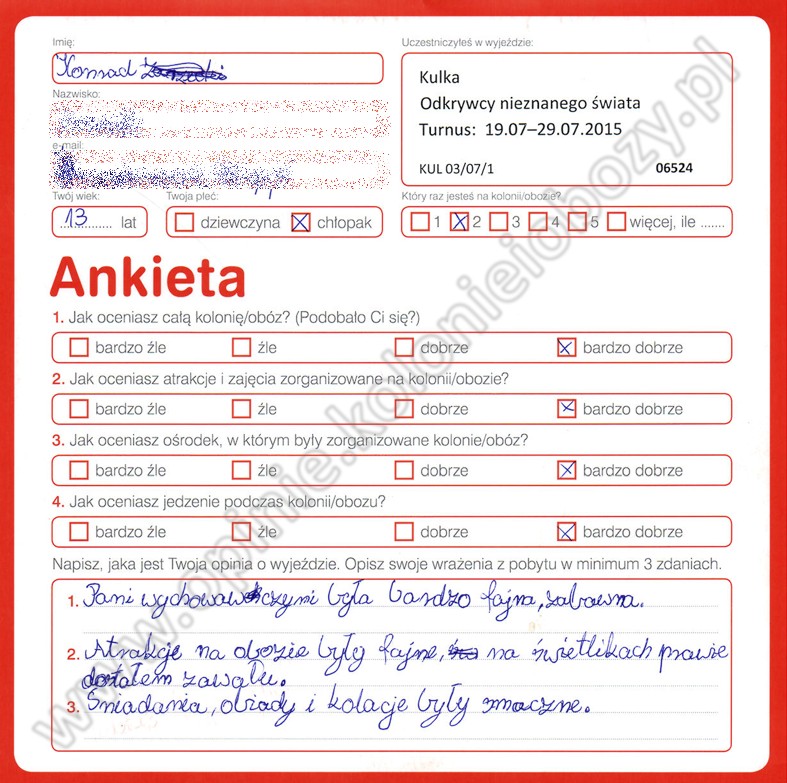 Imię:
Konrad
Uczestniczyłeś w wyjeździe:
Kulka
Odkrywcy nieznanego świata
Turnus: 19.07–29.07.2015
KUL 03/07/1 06524
Nazwisko:
e-mail:
Twój wiek:
13 lat
Twoja płeć:
dziewczyna chłopak
Który raz jesteś na kolonii/obozie?
1 2 3 4 5 więcej, ile .......
Ankieta
1. Jak oceniasz całą kolonię/obóz? (Podobało Ci się?)
bardzo źle źle dobrze bardzo dobrze
2. Jak oceniasz atrakcje i zajęcia zorganizowane na kolonii/obozie?
bardzo źle źle dobrze bardzo dobrze
3. Jak oceniasz ośrodek, w którym były zorganizowane kolonie/obóz?
bardzo źle źle dobrze bardzo dobrze
4. Jak oceniasz jedzenie podczas kolonii/obozu?
bardzo źle źle dobrze bardzo dobrze
Napisz, jaka jest Twoja opinia o wyjeździe. Opisz swoje wrażenia z pobytu w minimum 3 zdaniach.
1. Pani wychowawczymi była bardzo fajna, zabawna.
2. Atrakcje na obozie były fajne, na świetlikach prawie
dostałem zawału.
3. Śniadania, obiady i kolacje były smaczne.
www.opinie.kolonieiobozy.pl